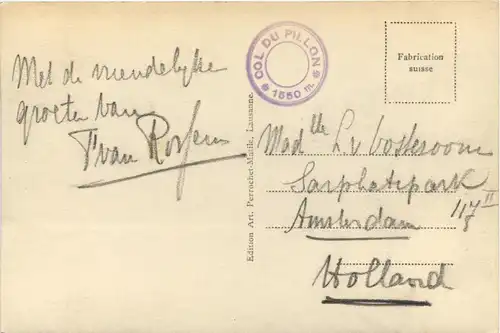 Met de vriendelijke
groeten van
COL DU PILLON
* 1550 m. *
Fabrication
suisse
Edition Art. Perrochet-Matile, Lausanne.
Madlle L. v
Sarphatipark
117 II
Amsterdam
Holland